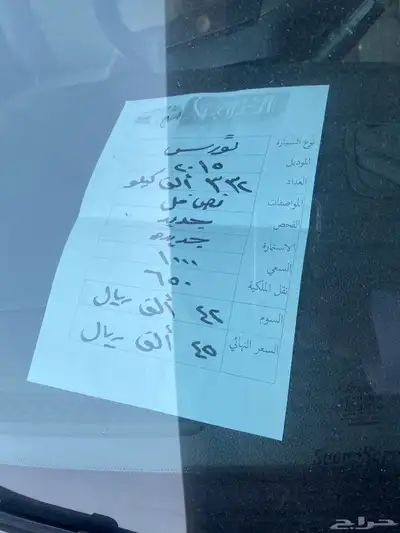 نوع السيارة تورس
الموديل ٢٠١٥
العداد ٣٣٢ ألف كيلو
المواصفات نص فل
الفحص جديد
الاستمارة جديده
السعي ١٠٠٠
نقل الملكية ٦٥٠
السوم ٤٢ ألف ريال
السعر النهائي ٤٥ ألف ريال
حراج